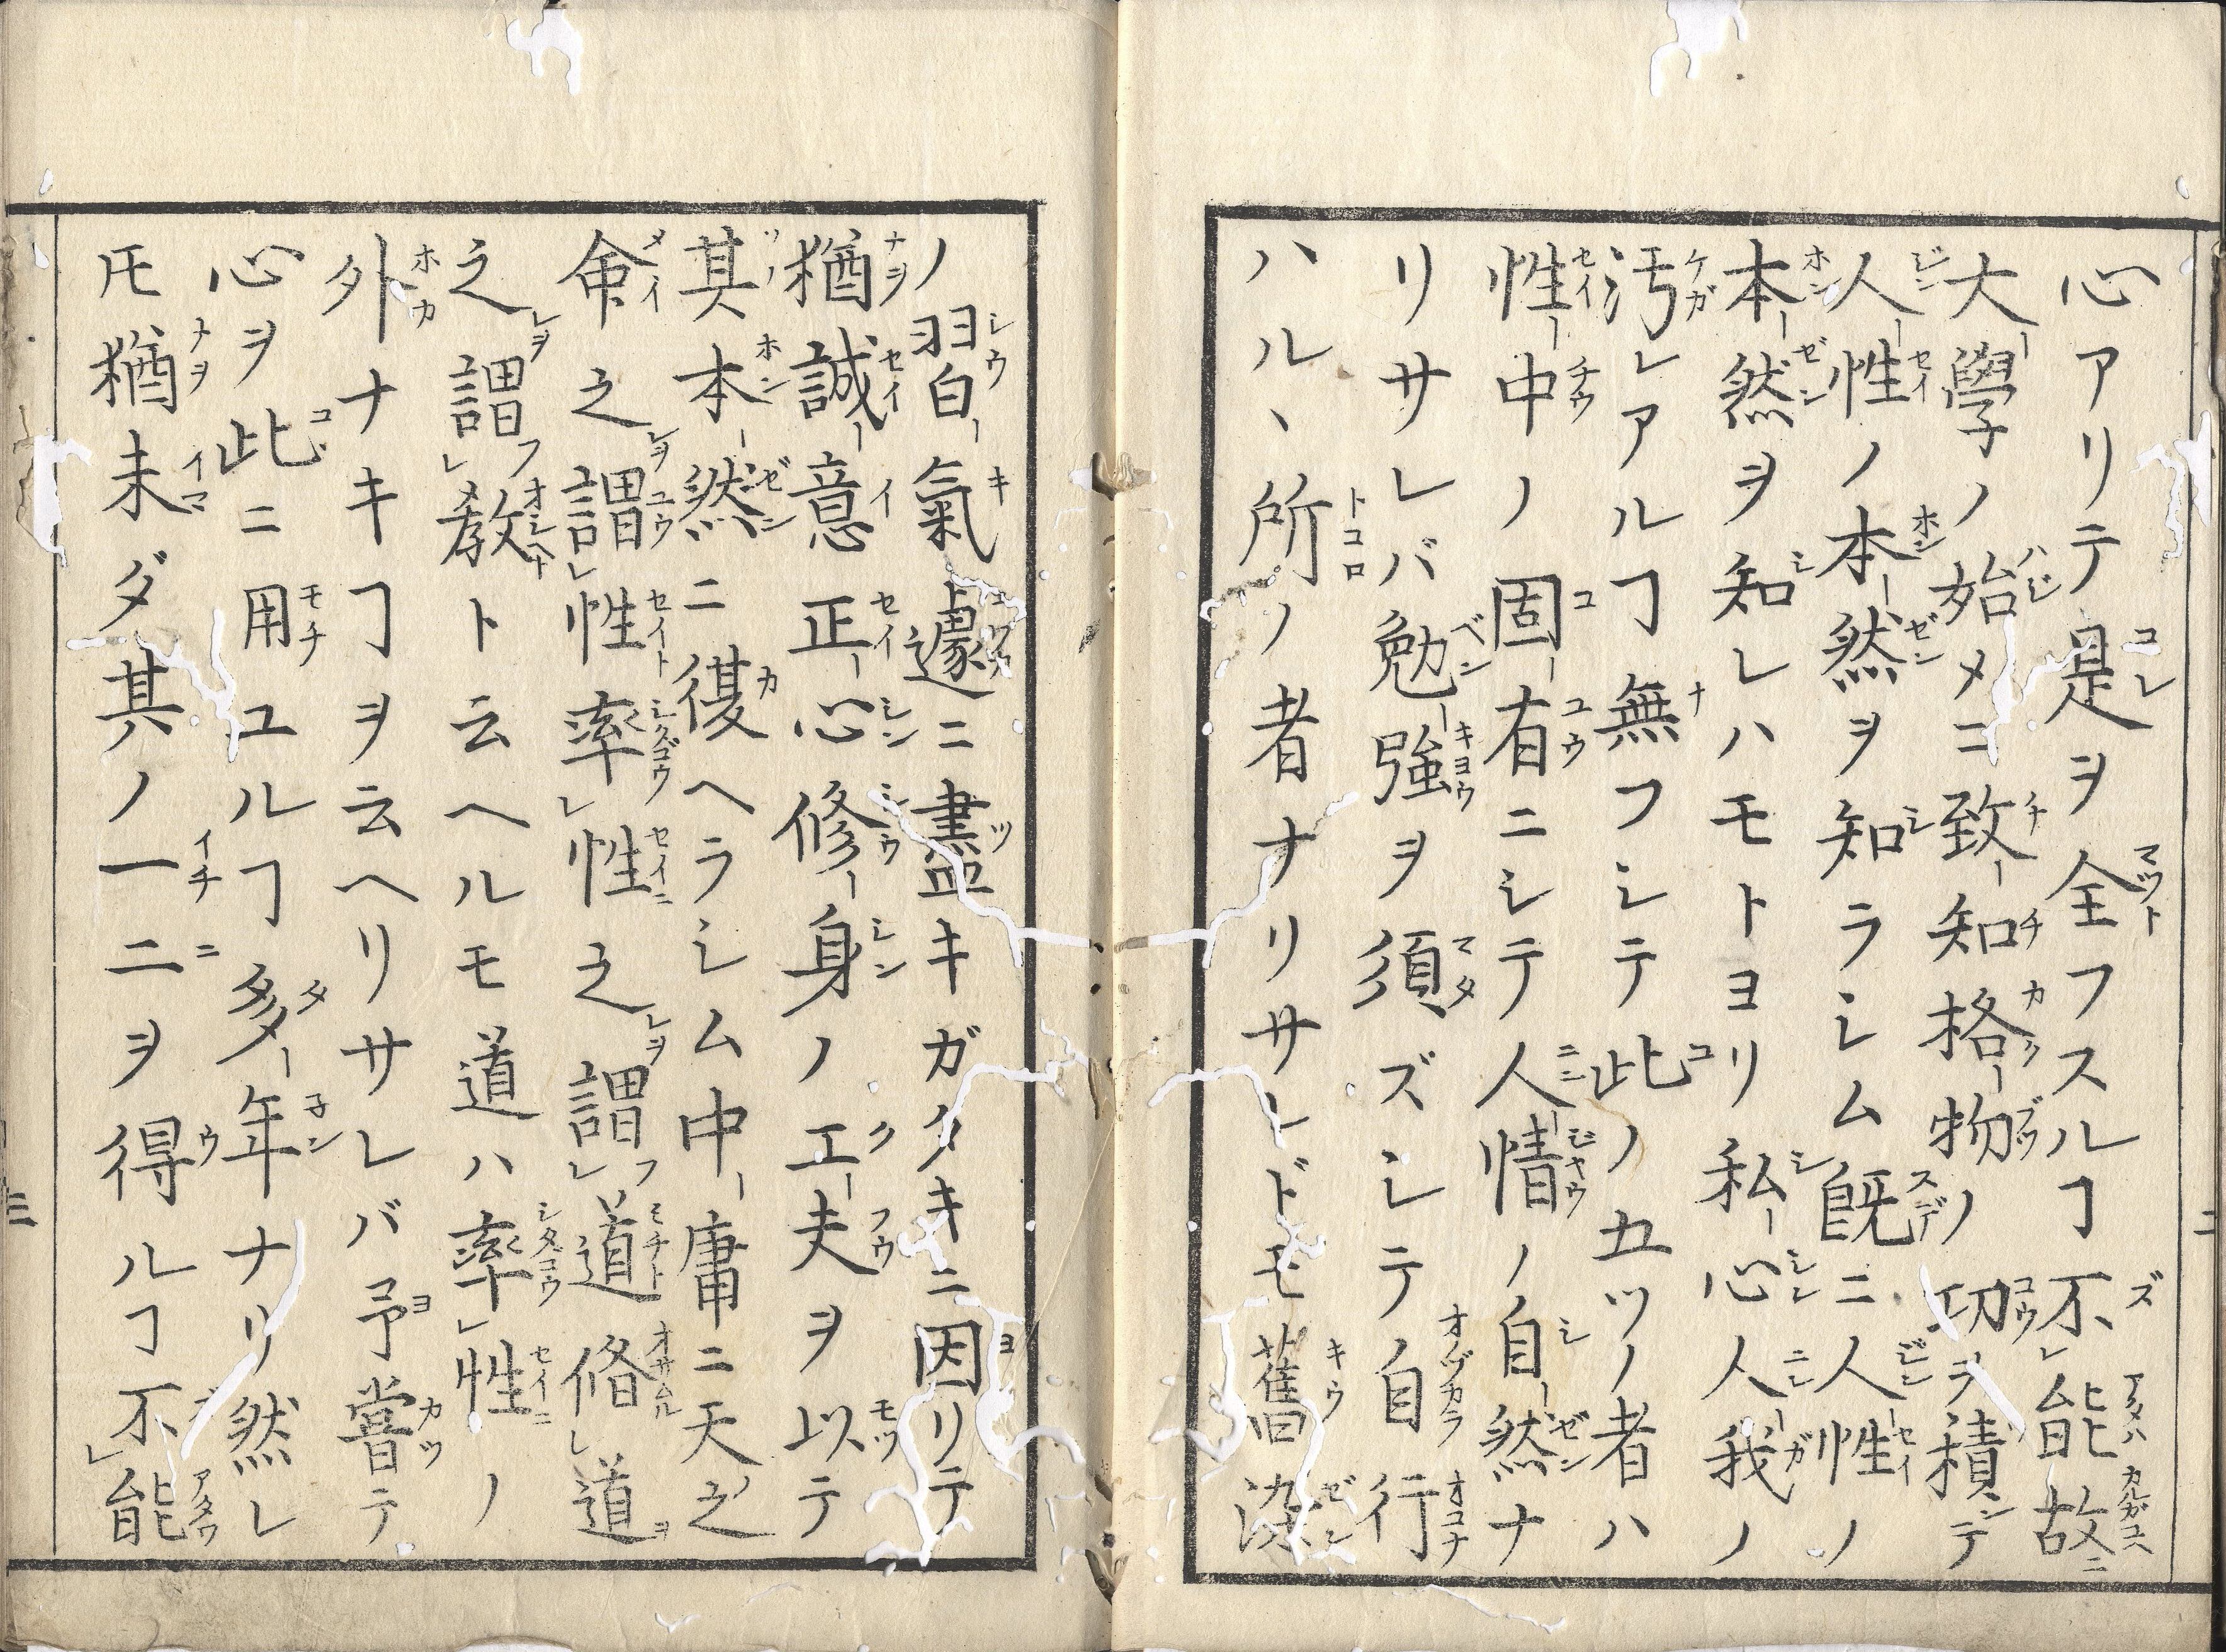 心アリテ是ヲ全フスルヿ不㆑能故ニ
大-學ノ始メヨ致-知格-物ノ功ヲ積ンテ
人-性ノ本-然ヲ知ラシム既ニ人-性ノ
本-然ヲ知レハモトヨリ私-心人-我ノ
汚レアルヿ無フシテ此ノ五ツノ者ハ
性-中ノ固-有ニシテ人-情ノ自-然ナ
リサレバ勉-強ヲ須ズシテ自行
ハルヽ所ノ者ナリサレドモ舊染
ノ習-氣遽ニ盡キガタキニ因リテ
猶誠-意正-心修-身ノ工-夫ヲ以テ
其本-然ニ復ヘラシム中-庸ニ天之
命之謂㆑性率㆑性之謂㆑道脩㆑道
之謂㆑教ト云ヘルモ道ハ率㆑性ノ
外ナキヿヲ云ヘリサレバ予嘗テ
心ヲ此ニ用ユルヿ多-年ナリ然レ
𪜈猶未ダ其ノ一二ヲ得ルヿ不㆑能
二
三